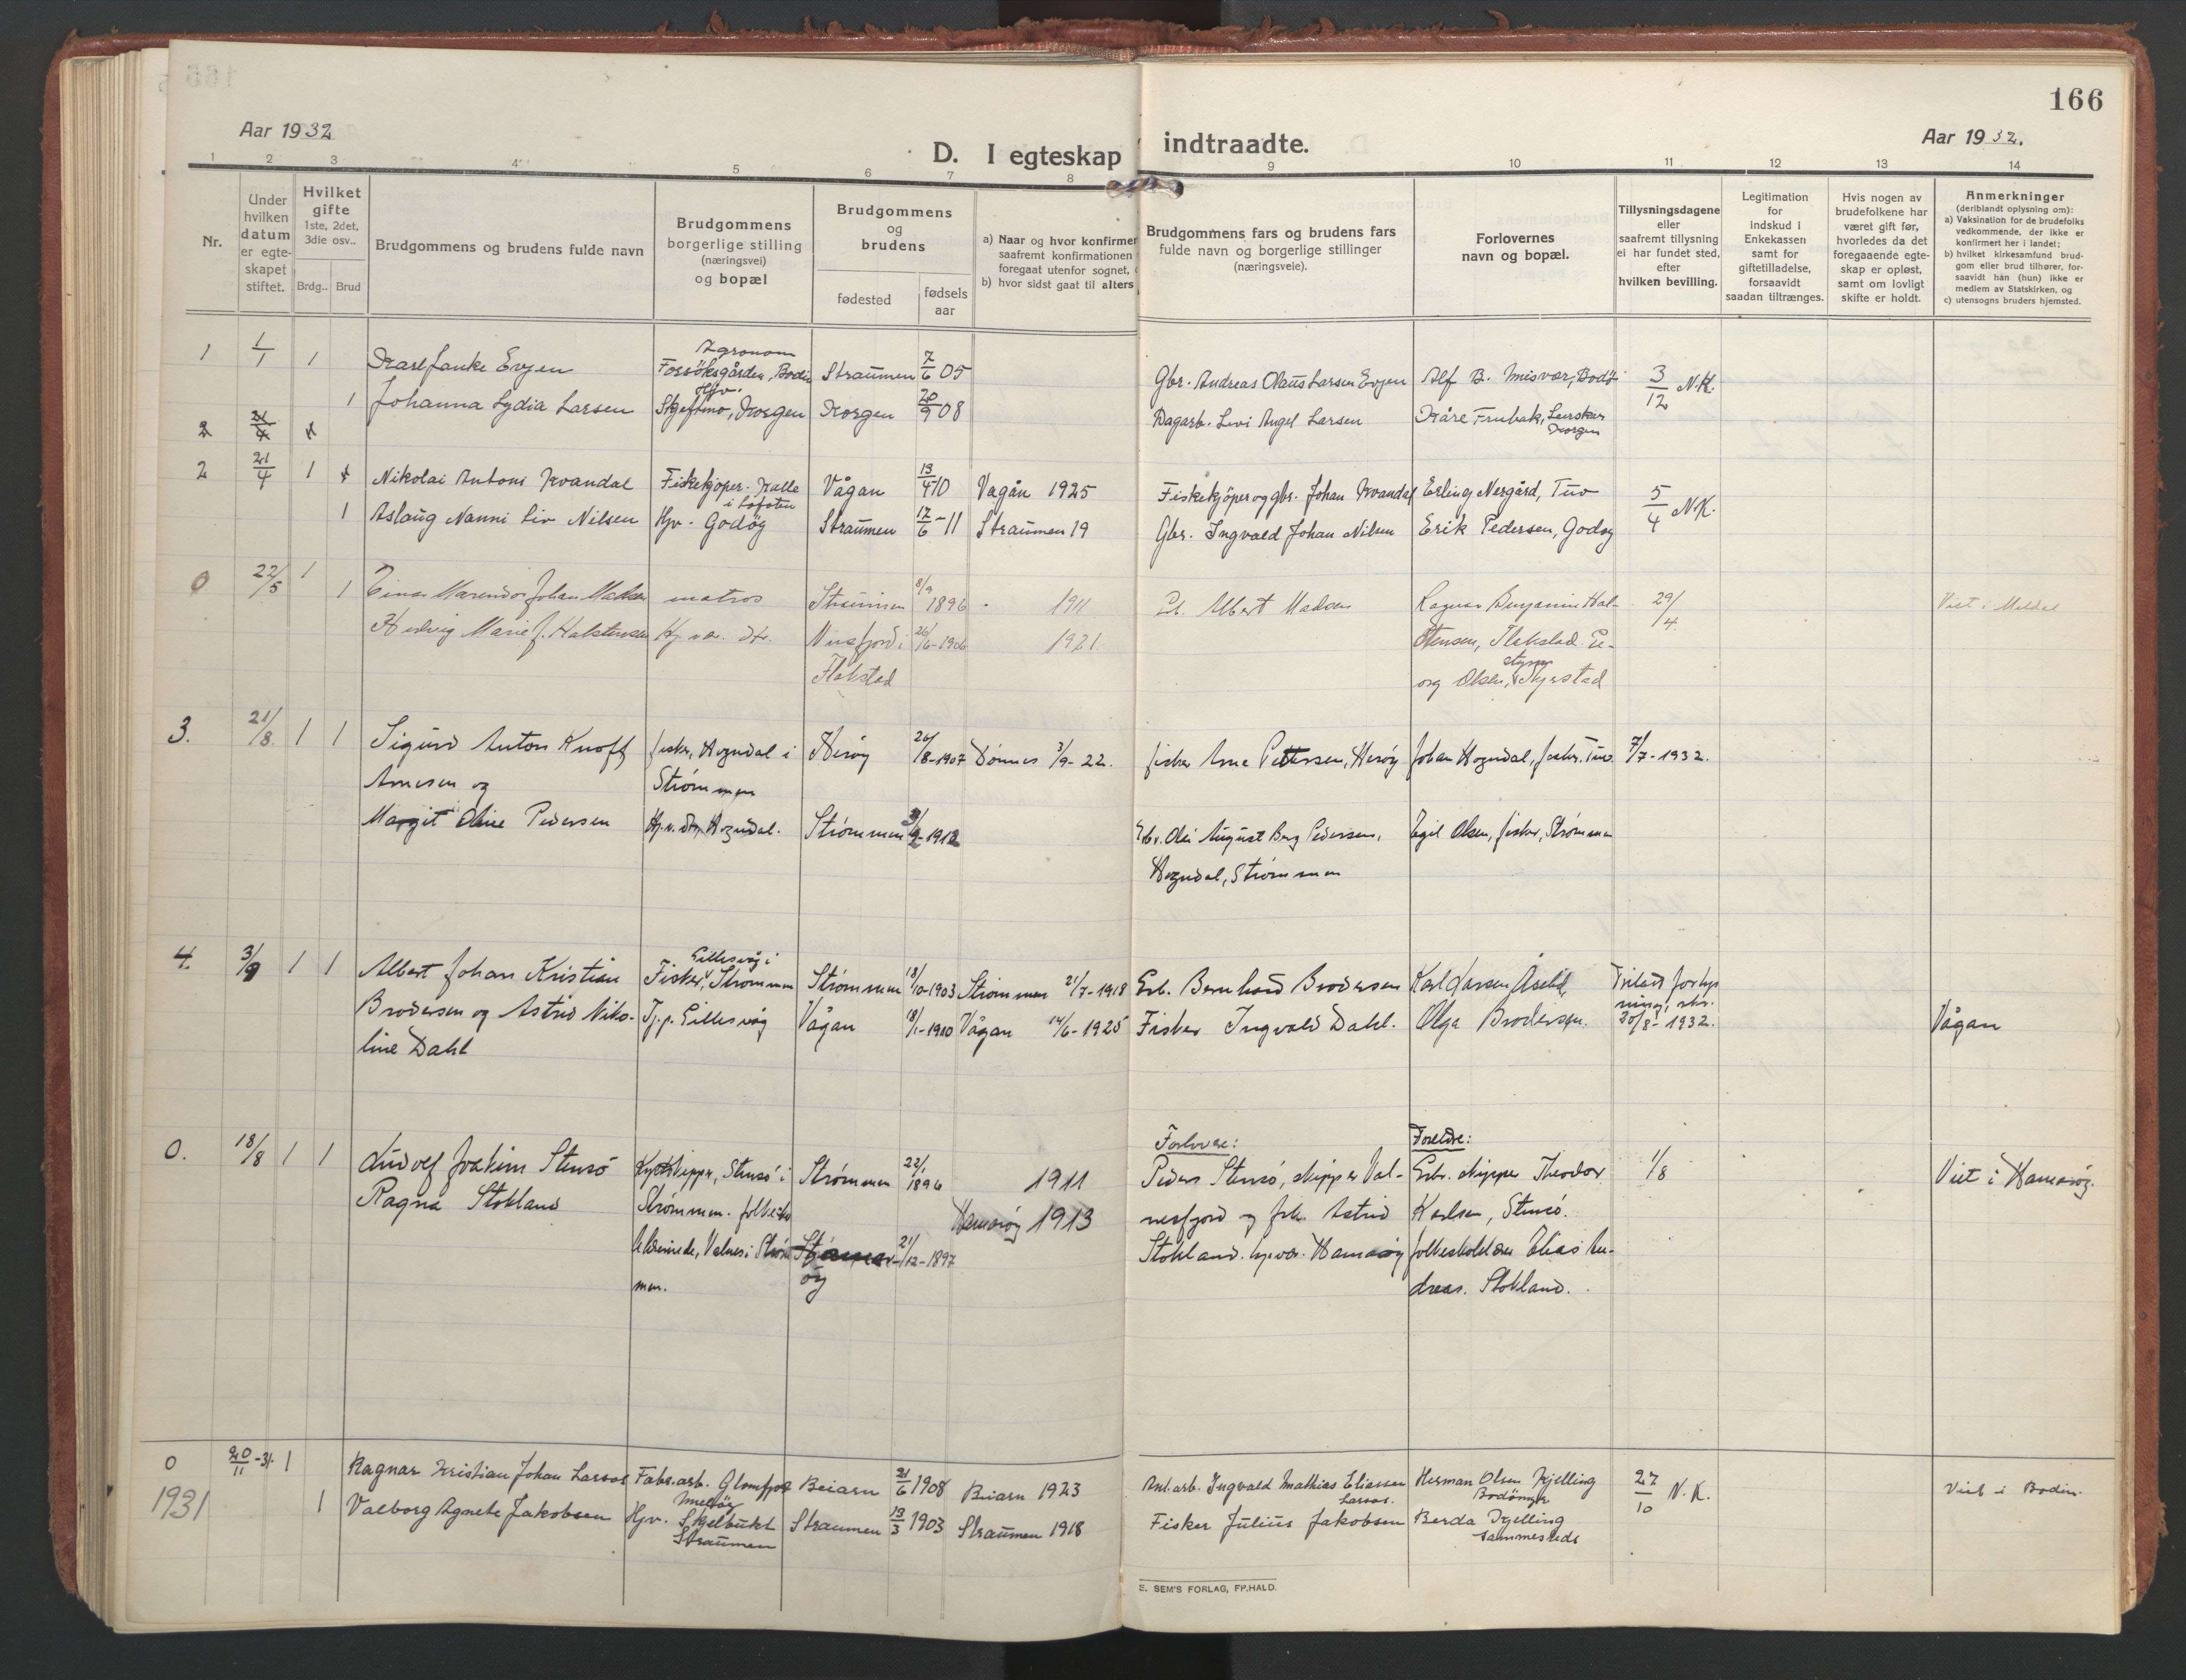 166
Aar 1932
D. I egteskap indtraadte.
Aar 1932.
1 2 3 4 5 6 7 8 9 10 11 12 13 14
Nr.
Under hvilken datum er egteskapet stiftet.
Hvilket gifte 1ste, 2det, 3die osv..
Brdg.. Brud
Brudgommens og brudens fulde navn
Brudgommens borgerlige stilling (næringsvei) og bopæl
Brudgommens og brudens
fødested
fødsels aar
a) Naar og hvor konfirmer
saafremt konfirmationen
foregaat utenfor sognet,
b) hvor sidst gaat til alters
Brudgommens fars og brudens fars
fulde navn og borgerlige stillinger
(næringsveie).
Forlovernes
navn og bopæl.
Tillysningsdagene
eller
saafremt tillysning
ei har fundet sted,
efter
hvilken bevilling.
Legitimation
for
indskud i
Enkekassen
samt for
giftetilladelse,
forsaavidt
saadan tiltrænges.
Hvis nogen av
brudefolkene har
været gift før,
hvorledes da det
foregaaende egte-
skap er opløst,
samt om lovligt
skifte er holdt.
Anmerkninger
(deriblandt oplysning om):
a) Vaksination for de brudefolks
vedkommende, der ikke er
konfirmert her i landet;
b) hvilket kirkesamfund brud-
gom eller brud tilhører, for-
saavidt han (hun) ikke er
medlem av Statskirken, og
c) utensogns bruders hjemsted.
1 1/1 1 Karl Janke Evjen Agronom Forsöksgården, Bodin Straumen 7/6 05 Gbr. Andreas Olaus Larsen Evjen Alf B. Misvær, Bodø 3/12 N.K.
1 Johanna Lydia Larsen Hjv. Korgen Korgen 20/9 08 Dagarb. Levi Angel Larsen Kåre Korgen
2 21/4
2 21/4 1 Nikolai Antoni Kvandal Fiskekjøper. Kalle i Lofoten Vågan 13/4 10 Vagån 1925 Fiskekjøper og gbr. Johan Kvandal Erling Nergård, Tuv 5/4 N.K.
1 Aslaug Nanni Liv Nilsen Hjv. Godøy Straumen 17/6-11 Straumen 19 Gbr. Ingvald Johan Nilsen Erik Pedersen, Godøy
0 22/5 1 1 Einar Johan Madsen matros Strømmen 8/9 1896 1911 Eb. Albert Madsen Ragnar Benjamin Hal- 29/4 Viet i
Hedvig Marie J. Halstensen Hj.vær. dtr. Nusfjord i 26/6-1906 1921 stensen, Flakstad. Ge-
Flakstad org Olsen,
3. 21/8. 1 1 Sigurd Anton Knoff fisker, Hogndal i Herøy 26/8-1907 Dønnes 3/9-22. fisker Arne Pettersen, Herøy Johan Hogndal, fisker. Tuv 7/7-1932.
Arnesen og Strømmen
Margit Oline Pedersen Hj.v. dtr, Hogndal. Strømmen 1912 Ebr. Ole August Berg Pedersen, Egil Olsen, fisker, Strømmen
Hogndal, Strømmen
4. 3/9 1 1 Albert Johan Kristian Fisker, Gillesvåg i Strømmen Strømmen 18/10-1903 Strømmen 21/7-1918 Erb. Bernhard Brodersen Karl Larsen Åseli,
Brodersen og Astrid Niko- Tj.p. Gillesvåg Vågan 18/1-1910 Vågan 14/6-1925 Fisker Ingvald Dahl. Olga Brodersen. 30/8-1932. Vågan
line Dahl
0. 18/8 1 1 Ludolf Joakim Stensø Stensø i Strømmen 22/1 1896 1911 Forlovere: Foreldre: 1/8 Viet i Hamarøy.
Ragna Stokland Strømmen. Hamarøy 1913
Peder Stensø, skipper Val- Erb. skipper Theodor
nesfjord og frk. Astrid Karlsen, Stensø.
Stokland. hj.vær. Hamarøy folkeskolelærer Elias An-
dreas. Stokland.
Valnes i Strøm 21/12-1897
men. øy
0 20/11-31. 1 Ragnar Kristian Johan Larsos Fabr.arb. Glomfjord Meløy Beiarn 21/6 1908 Beiarn 1923 Anl.arb. Ingvald Mathias Eliassen Larsos. Herman Olsen Kjelling 27/10 N.K. Viet i Bodin.
1931 1 Valborg Agnete Jakobsen Hjv. Skjelbukt Straumen Straumen 13/3 1903 Straumen 1918 Fisker Julius Jakobsen Berda Kjelling sammesteds
E. SEM'S FORLAG, FR.HALD.